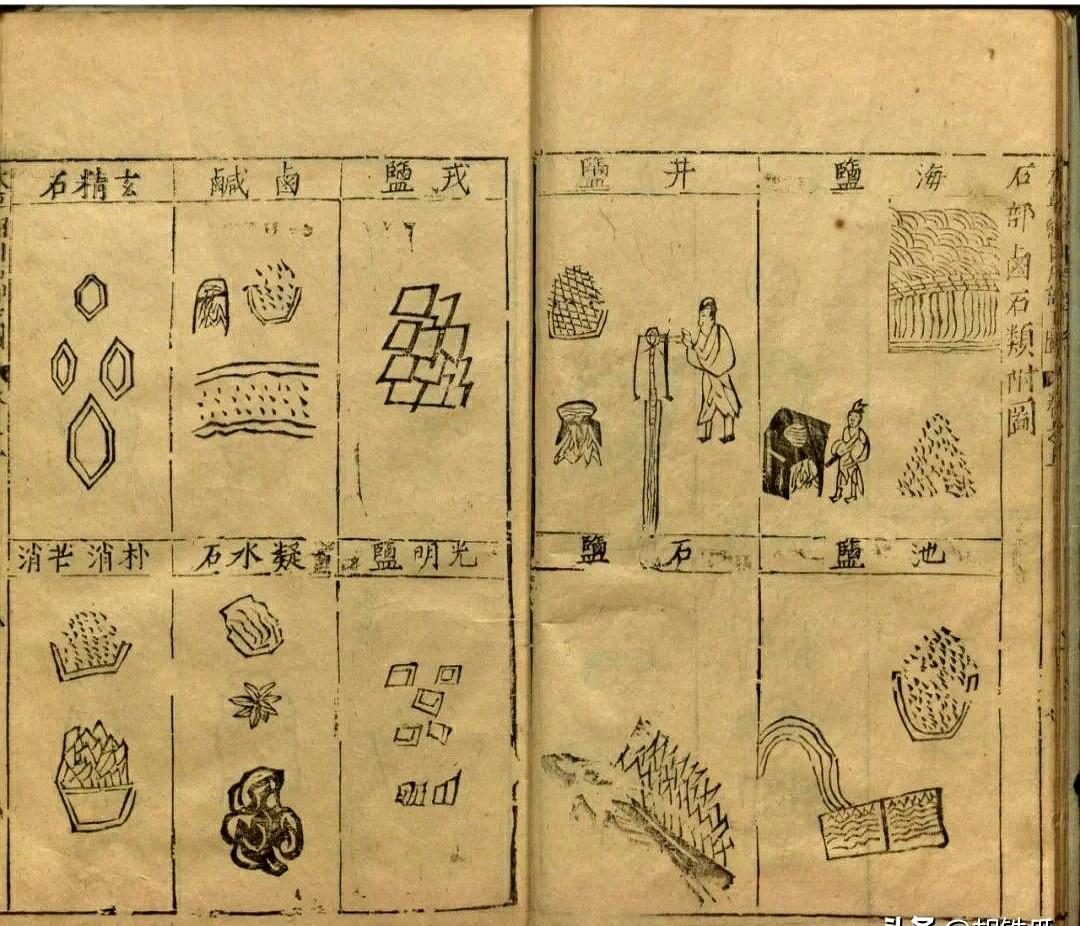 石部鹵石類附圖
海鹽
井鹽
池鹽
石鹽
戎鹽
鹵鹹
玄精石
光明鹽
凝水石
朴消芒消